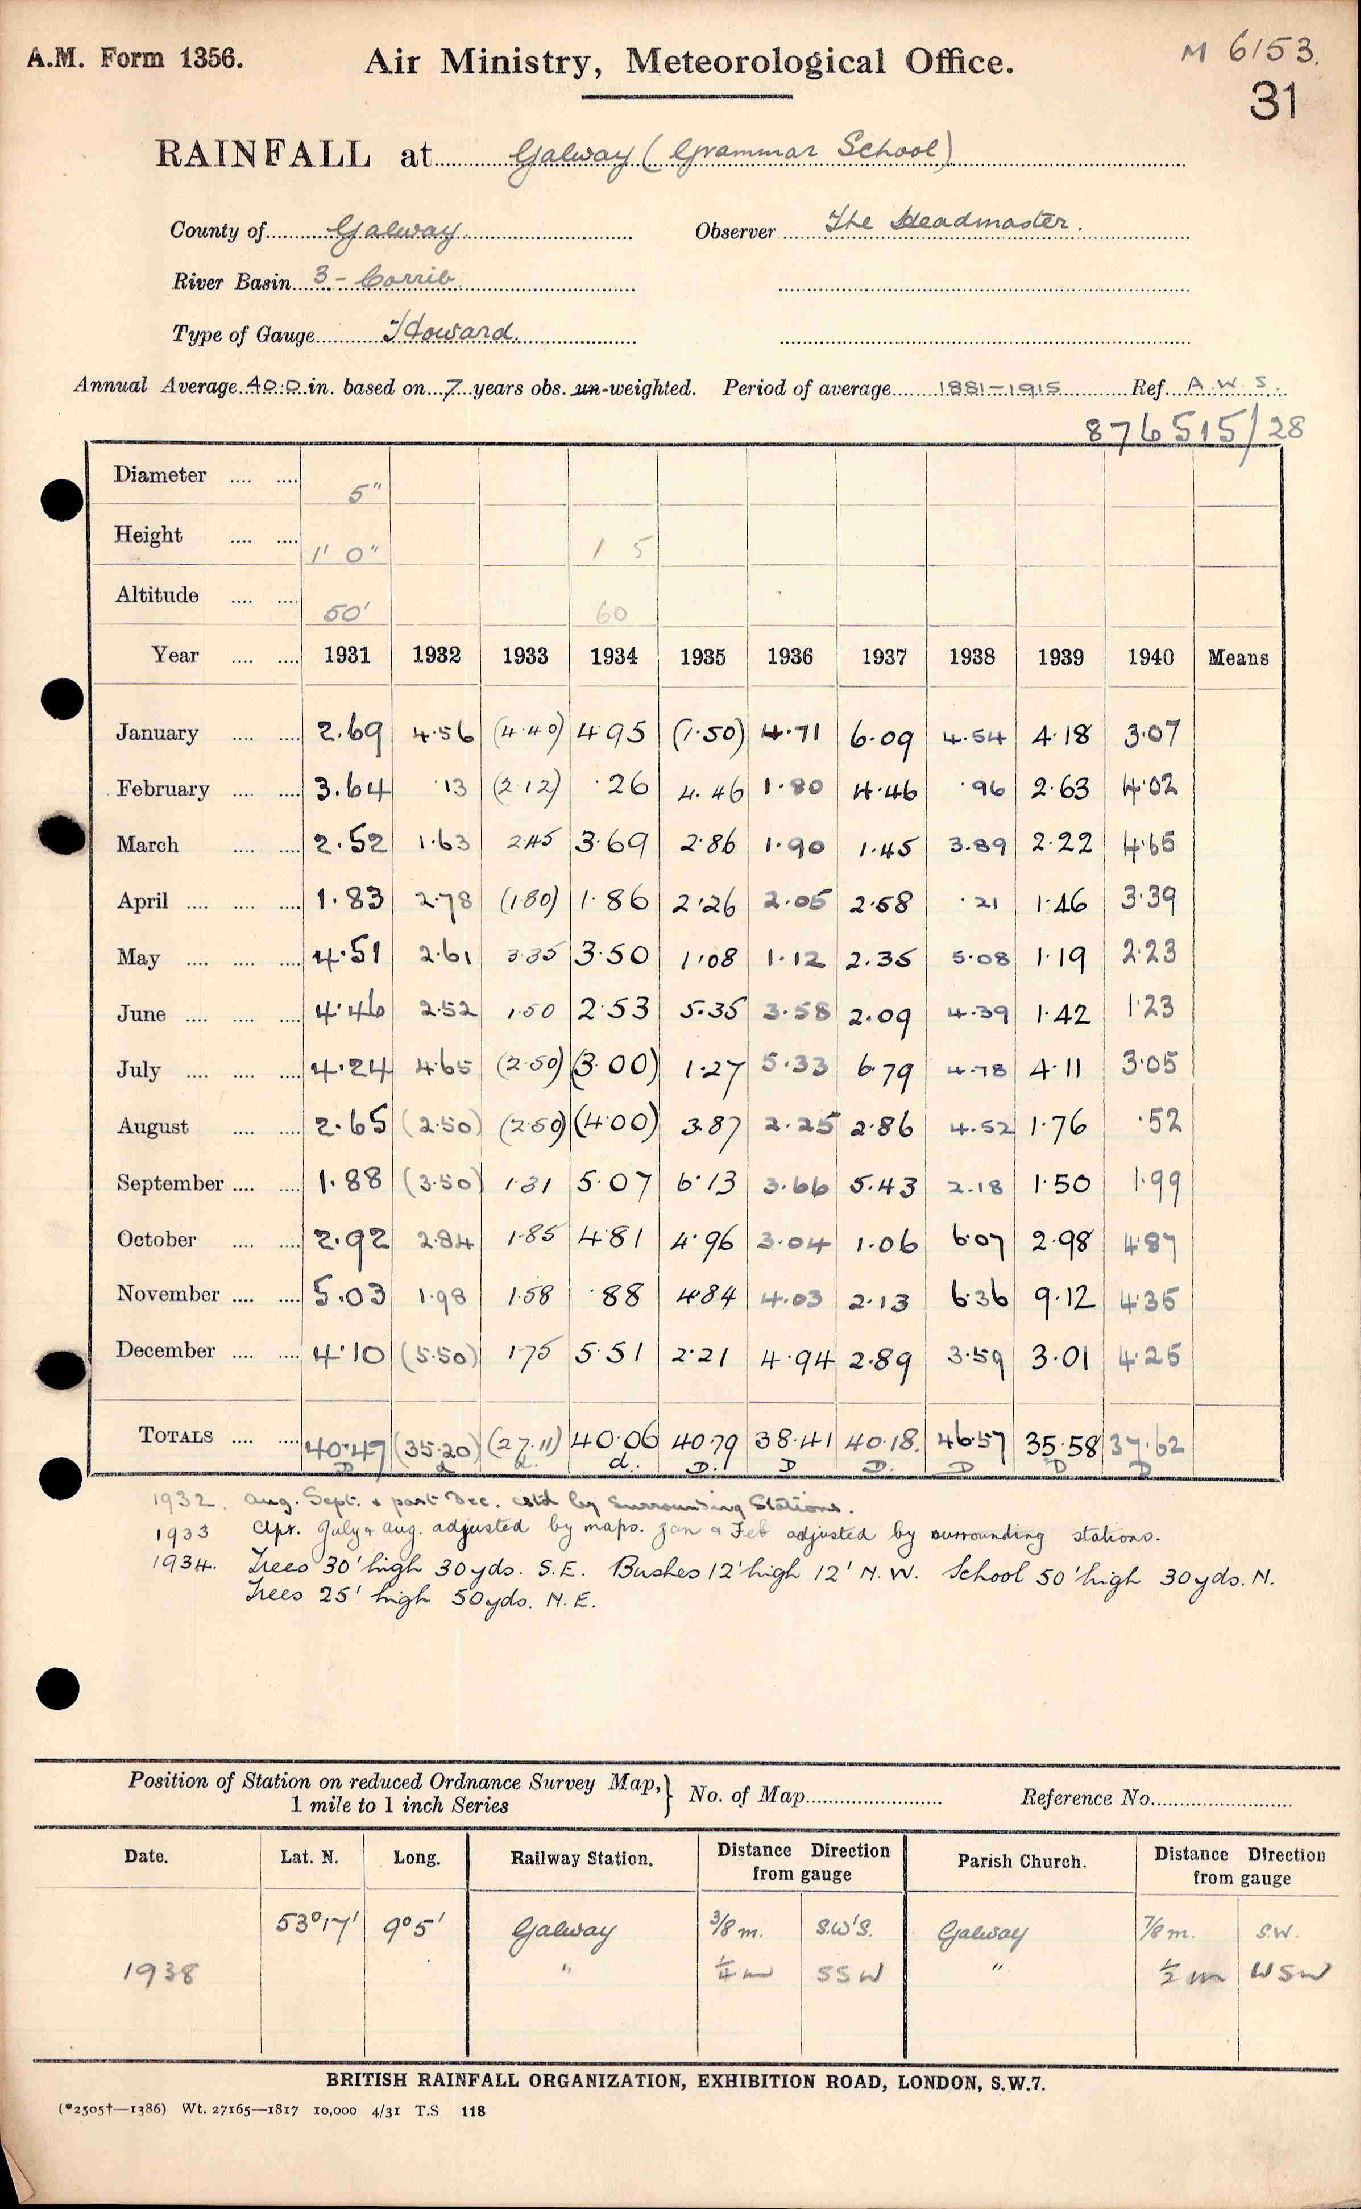 A.M. Form 1356.
Air Ministry, Meteorological Office.
M 6153.
31
RAINFALL at Galway (Grammar School)
County of Galway Observer The Headmaster.
River Basin 3 - Corrib
Type of Gauge Howard.
Annual Average 40.0 in. based on 7 years obs. un-weighted. Period of average 1881-1915 Ref. A.W.S.
876515/28
Diameter .... .... 5"
Height .... .... 1' 0" 1 5
Altitude .... .... 50' 60
Year .... .... 1931 1932 1933 1934 1935 1936 1937 1938 1939 1940 Means
January .... .... 2.69 4.56 (4.40) 4.95 (1.50) 4.71 6.09 4.54 4.18 3.07
February .... .... 3.64 .13 (2.12) .26 4.46 1.80 4.46 .96 2.63 4.02
March .... .... 2.52 1.63 2.45 3.69 2.86 1.90 1.45 3.89 2.22 4.65
April .... .... .... 1.83 2.78 (1.80) 1.86 2.26 2.05 2.58 .21 1.46 3.39
May .... .... .... 4.51 2.61 3.35 3.50 1.08 1.12 2.35 5.08 1.19 2.23
June .... .... .... 4.46 2.52 1.50 2.53 5.35 3.58 2.09 4.39 1.42 1.23
July .... .... .... 4.24 4.65 (2.50) (3.00) 1.27 5.33 6.79 4.78 4.11 3.05
August .... .... 2.65 (2.50) (2.50) (4.00) 3.87 2.25 2.86 4.52 1.76 .52
September .... .... 1.88 (3.50) 1.31 5.07 6.13 3.66 5.43 2.18 1.50 1.99
October .... .... 2.92 2.84 1.85 4.81 4.96 3.04 1.06 6.07 2.98 4.87
November .... .... 5.03 1.98 1.58 .88 4.84 4.03 2.13 6.36 9.12 4.35
December .... .... 4.10 (5.50) 1.75 5.51 2.21 4.94 2.89 3.59 3.01 4.25
TOTALS .... .... 40.47 (35.20) (27.11) 40.06 40.79 38.41 40.18. 46.57 35.58 37.62
D d d. d. D. D D. D D D
1932. Aug. Sept. & part Dec. estd by Surrounding Stations.
1933 Apr. July & Aug. adjusted by maps. Jan & Feb adjusted by surrounding stations.
1934. Trees 30' high 30yds. S.E. Bushes 12' high 12' N.W. School 50' high 30yds. N.
Trees 25' high 50yds. N.E.
Position of Station on reduced Ordnance Survey Map, } No. of Map Reference No.
1 mile to 1 inch Series
Date. Lat. N. Long. Railway Station. Distance Direction from gauge Parish Church. Distance Direction from gauge
53°17' 9°5' Galway 3/8 m. S.W'S. Galway 7/8 m. S.W.
1938 " 1/4 m SSW " 1/2 m WSW
BRITISH RAINFALL ORGANIZATION, EXHIBITION ROAD, LONDON, S.W.7.
(*2505†—1386) Wt. 27165—1817 10,000 4/31 T.S 118